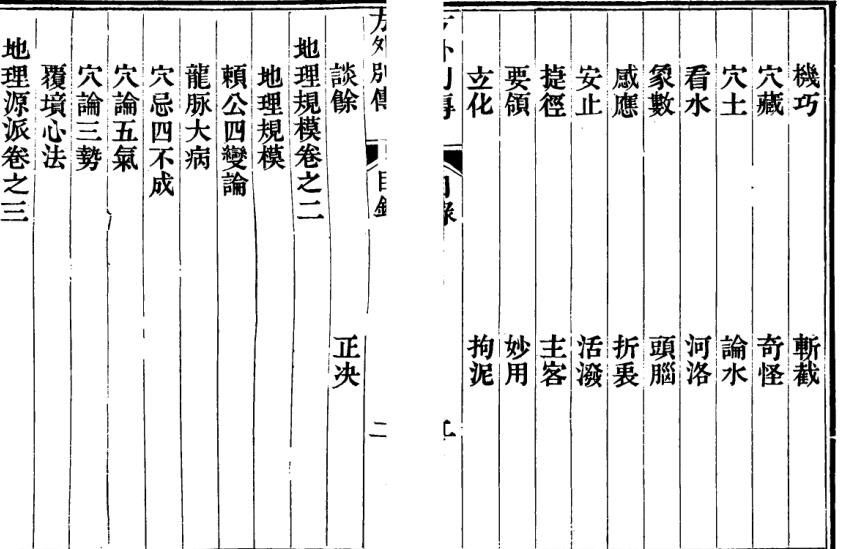 機巧 斬截
穴藏 奇怪
穴土 論水
看水 河洛
象數 頭腦
感應 折衷
安止 活潑
捷徑 主客
要領 妙用
玄化 拘泥
方外別傳 目錄 二
談餘 正决
地理規模卷之二
地理規模
賴公四變論
龍脉大病
穴忌四不成
穴論五氣
穴論三勢
覆墳心法
地理源派卷之三